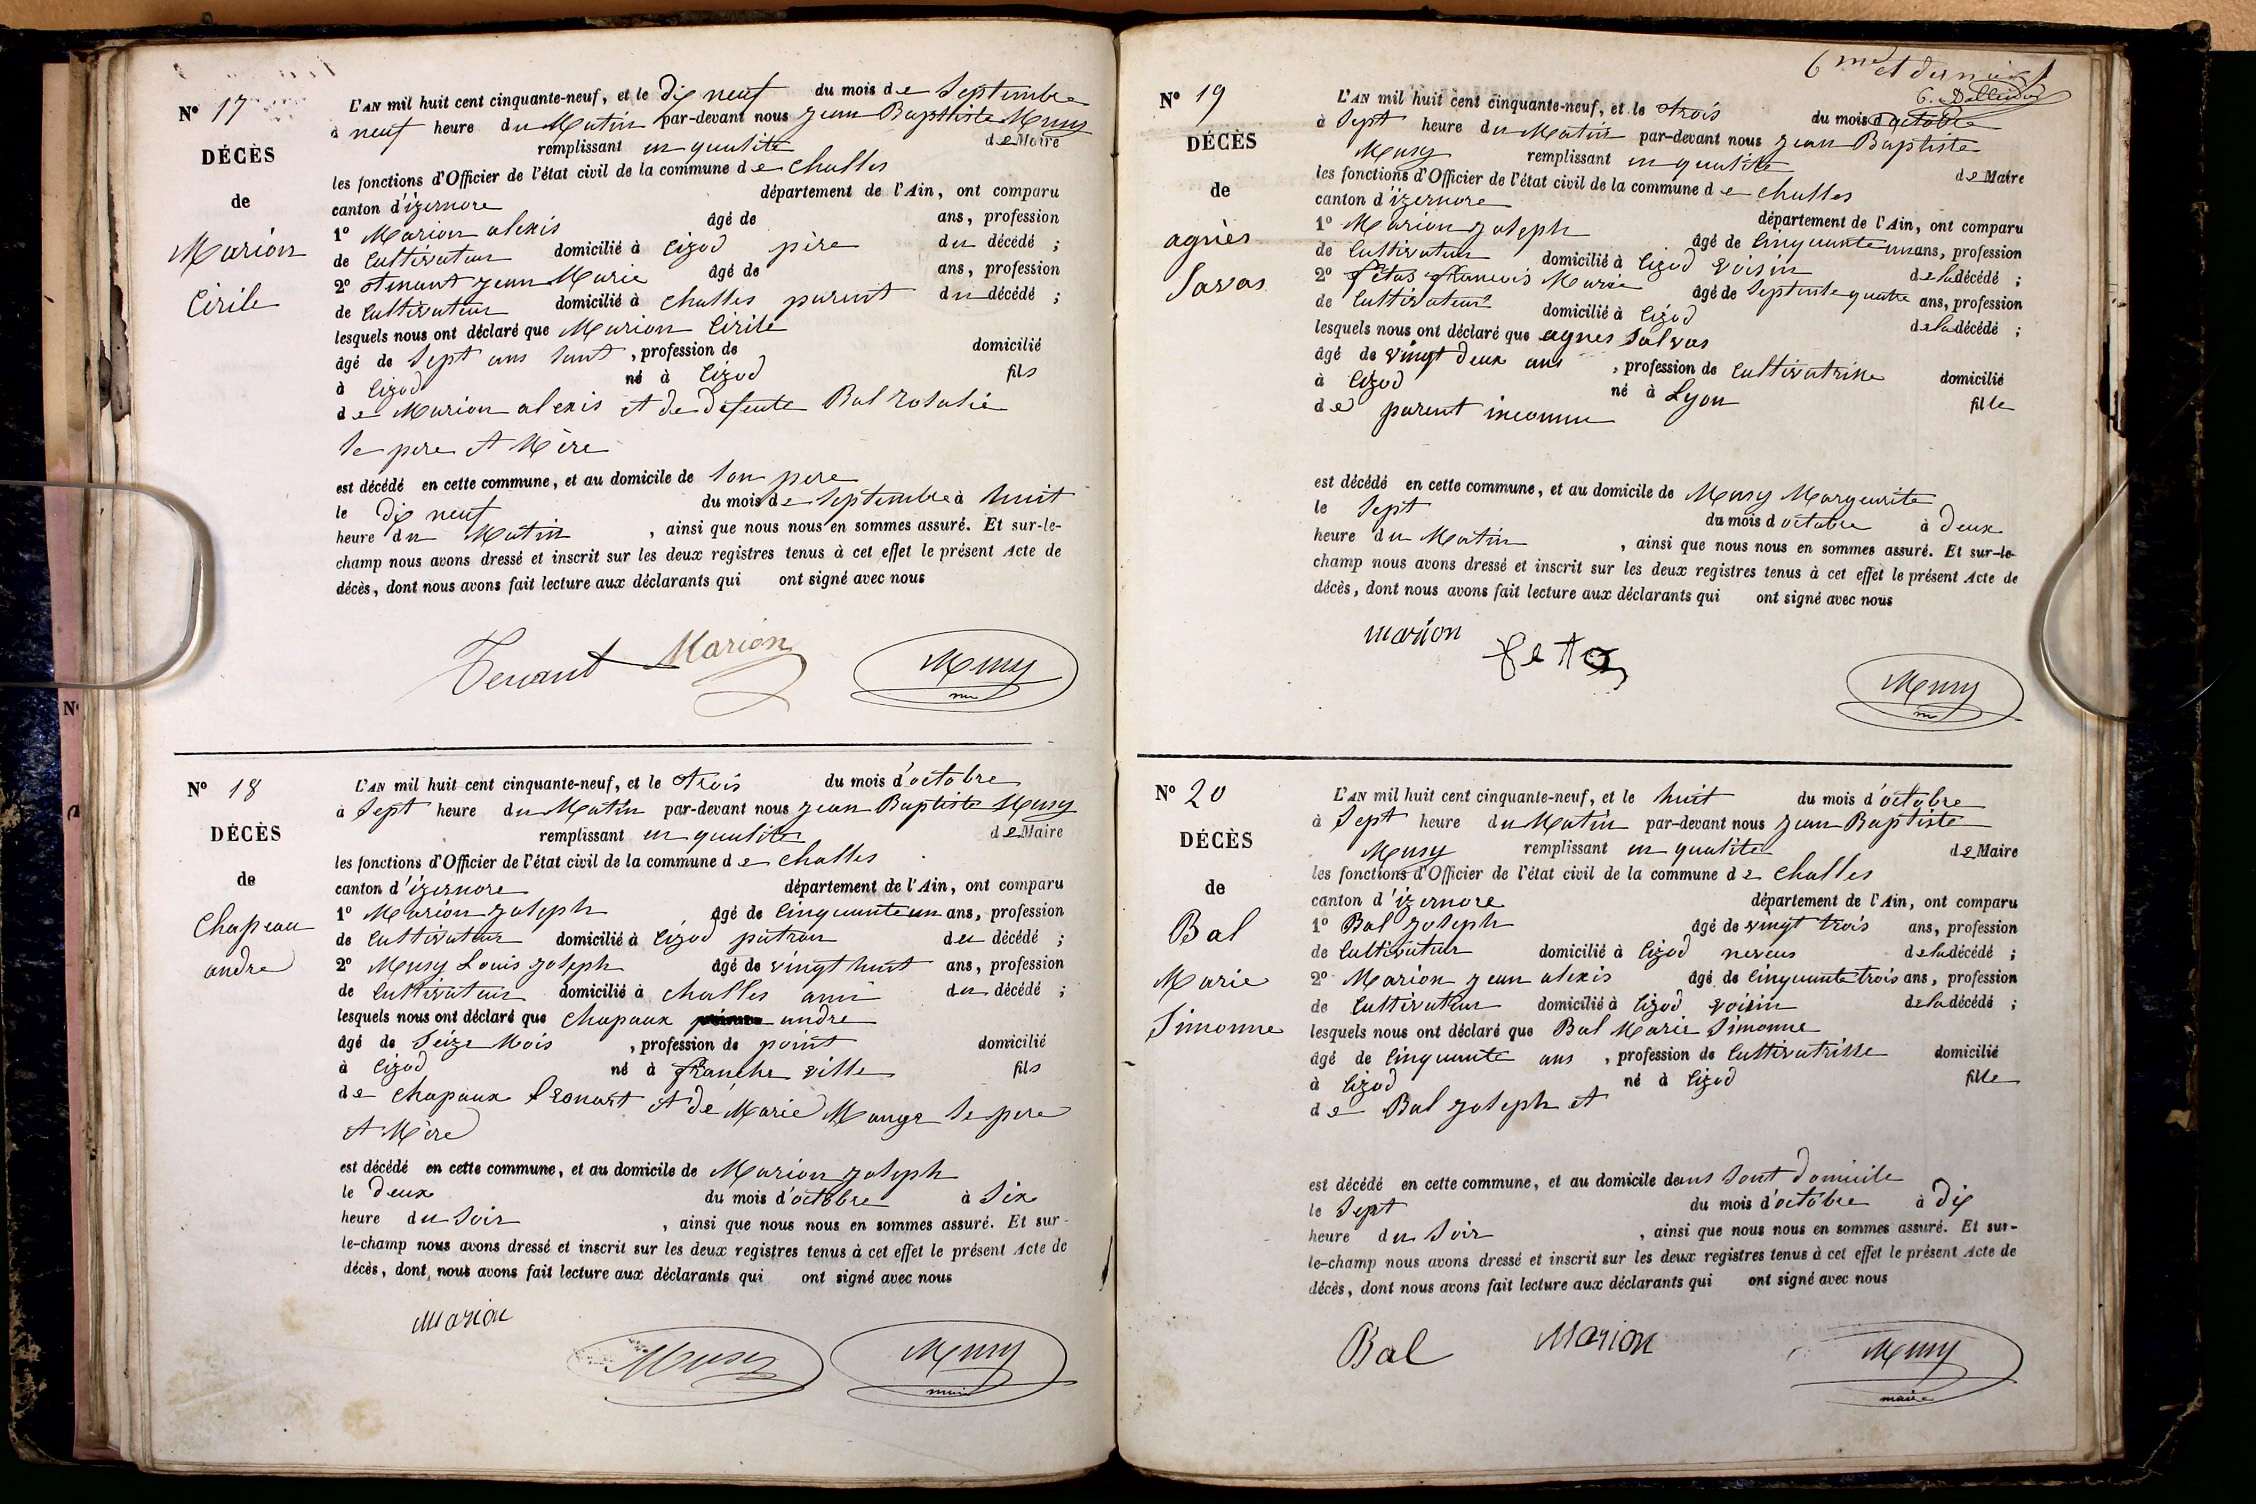 N° 17
DÉCÈS
de
Marion
Cirile
L'AN mil huit cent cinquante-neuf, et le dix neuf du mois de Septembre
à neuf heure du Matin par-devant nous jean Baptiste Musy
remplissant en qualité de Maire
les fonctions d'Officier de l'état civil de la commune de challes
canton d'izernore département de l'Ain, ont comparu
1° Marion alexis âgé de ans, profession
de Cultivateur domicilié à Cizod père du décédé ;
2° tenant jean Marie âgé de ans, profession
de Cultivateur domicilié à challes parent du décédé ;
lesquels nous ont déclaré que Marion Cirile
âgé de Sept ans , profession de domicilié
à Cizod né à Cizod fils
de Marion alexis et de défunte Bal rosalie
Se pere et Mère
est décédé en cette commune, et au domicile de Son pere
le dix neuf du mois de Septembre à huit
heure du Matin , ainsi que nous nous en sommes assuré. Et sur-le-
champ nous avons dressé et inscrit sur les deux registres tenus à cet effet le présent Acte de
décès, dont nous avons fait lecture aux déclarants qui ont signé avec nous
Tenant Marion Musy
N° 18
DÉCÈS
de
Chapeau
andre
L'AN mil huit cent cinquante-neuf, et le trois du mois d'octobre
à Sept heure du Matin par-devant nous jean Baptiste Musy
remplissant en qualité de Maire
les fonctions d'Officier de l'état civil de la commune de challes
canton d'izernore département de l'Ain, ont comparu
1° Marion joseph âgé de Cinquante un ans, profession
de Cultivateur domicilié à Cizod patron du décédé ;
2° Musy Louis joseph âgé de vingt huit ans, profession
de Cultivateur domicilié à challes ami du décédé ;
lesquels nous ont déclaré que chapaux andre
âgé de Seize Mois , profession de point domicilié
à Cizod né à franche ville fils
de chapaux Leonart et de Marie Mange Se pere
et Mère
est décédé en cette commune, et au domicile de Marion joseph
le deux du mois d'octobre à Six
heure du Soir , ainsi que nous nous en sommes assuré. Et sur-
le-champ nous avons dressé et inscrit sur les deux registres tenus à cet effet le présent Acte de
décès, dont nous avons fait lecture aux déclarants qui ont signé avec nous
Marion
Musy Musy
maire
6me et dernier
N° 19
DÉCÈS
de
agnès
Savas
L'AN mil huit cent cinquante-neuf, et le trois du mois d'octobre
à Sept heure du Matin par-devant nous jean Baptiste
Musy remplissant en qualité de Maire
les fonctions d'Officier de l'état civil de la commune de challes
canton d'izernore département de l'Ain, ont comparu
1° Marion joseph âgé de Cinquante un ans, profession
de Cultivateur domicilié à Cizod voisin de la décédé ;
2° fétas francois Marie âgé de Septente quatre ans, profession
de Cultivateur domicilié à Cizod de la décédé ;
lesquels nous ont déclaré que agnes Salvas
âgé de vingt deux ans , profession de Cultivatrise domicilié
à Cizod né à Lyon fille
de parent inconnu
est décédé en cette commune, et au domicile de Musy Margeurite
le Sept du mois d'octobre à deux
heure du Matin , ainsi que nous nous en sommes assuré. Et sur-le-
champ nous avons dressé et inscrit sur les deux registres tenus à cet effet le présent Acte de
décès, dont nous avons fait lecture aux déclarants qui ont signé avec nous
marion
fetas
Musy
N° 20
DÉCÈS
de
Bal
Marie
Simonne
L'AN mil huit cent cinquante-neuf, et le huit du mois d'octobre
à Sept heure du Matin par-devant nous jean Baptiste
Musy remplissant en qualité de Maire
les fonctions d'Officier de l'état civil de la commune de challes
canton d'izernore département de l'Ain, ont comparu
1° Bal joseph âgé de vingt trois ans, profession
de Cultivateur domicilié à Cizod neveus de la décédé ;
2° Marion jean alexis âgé de Cinquante trois ans, profession
de Cultivateur domicilié à Cizod voisin de la décédé ;
lesquels nous ont déclaré que Bal Marie Simonne
âgé de Cinquante ans , profession de Cultivatrisse domicilié
à Cizod né à Cizod fille
de Bal joseph et
est décédé en cette commune, et au domicile dans Sont domicile
le Sept du mois d'octobre à dix
heure du Soir , ainsi que nous nous en sommes assuré. Et sur-
le-champ nous avons dressé et inscrit sur les deux registres tenus à cet effet le présent Acte de
décès, dont nous avons fait lecture aux déclarants qui ont signé avec nous
Bal Marion Musy
maire